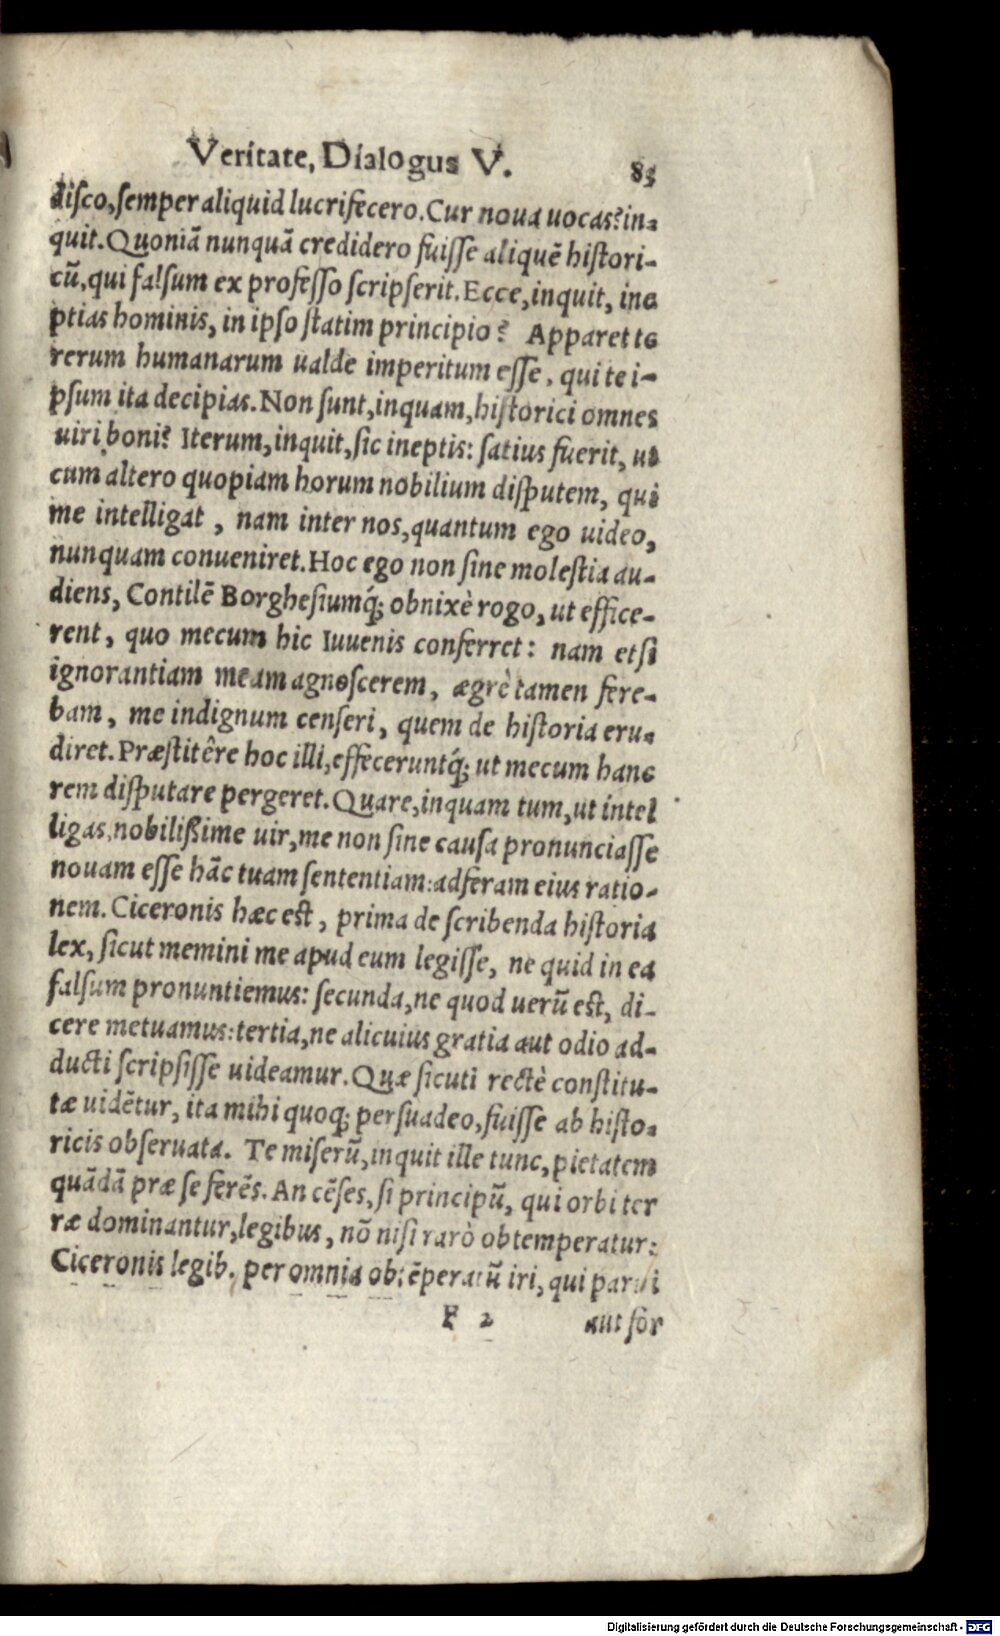 Veritate, Dialogus V. 83
disco, semper aliquid lucrifecero. Cur noua uocas? in-
quit. Quoniã nunquã credidero fuisse aliquẽ histori-
cũ, qui falsum ex professo scripserit. Ecce, inquit, ine
ptias hominis, in ipso statim principio? Apparet te
rerum humanarum ualde imperitum esse, qui te i-
psum ita decipias. Non sunt, inquam, historici omnes
uiri boni? Iterum, inquit, sic ineptis: satius fuerit, ut
cum altero quopiam horum nobilium disputem, qui
me intelligat, nam inter nos, quantum ego uideo,
nunquam conueniret. Hoc ego non sine molestia au-
diens, Contilẽ Borghesiumq́; obnixè rogo, ut effice-
rent, quo mecum hic Iuuenis conferret: nam etsi
ignorantiam meam agnoscerem, ægrè tamen fere-
bam, me indignum censeri, quem de historia eru-
diret. Præstitêre hoc illi, effeceruntq́; ut mecum hanc
rem disputare pergeret. Quare, inquam tum, ut intel
ligas, nobilißime uir, me non sine causa pronunciasse
nouam esse hãc tuam sententiam: adferam eius ratio-
nem. Ciceronis hæc est, prima de scribenda historia
lex, sicut memini me apud eum legisse, ne quid in ea
falsum pronuntiemus: secunda, ne quod uerũ est, di-
cere metuamus: tertia, ne alicuius gratia aut odio ad-
ducti scripsisse uideamur. Quæ sicuti rectè constitu-
tæ uidẽtur, ita mihi quoq; persuadeo, fuisse ab histo-
ricis obseruata. Te miserũ, inquit ille tunc, pietatem
quãdã præ se ferẽs. An cẽses, si principũ, qui orbi ter
ræ dominantur, legibus, nõ nisi rarò obtemperatur:
Ciceronis legib. per omnia obtẽperatũ iri, qui parui
F 2 aut for
Digitalisierung gefördert durch die Deutsche Forschungsgemeinschaft - DFG